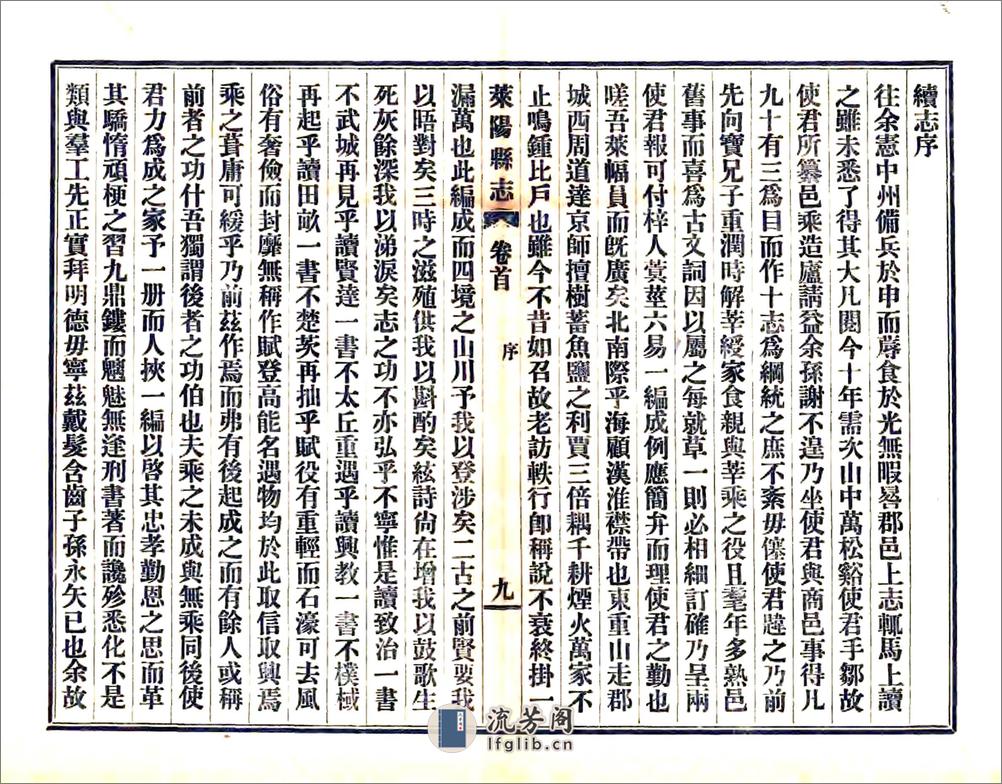 續志序
往余憲中州備兵於申而蓐食於光無暇晷郡邑上志輒馬上讀
之雖未悉了得其大凡閱今十年需次山中萬松谿使君手鄒故
使君所纂邑乘造廬請益余孫謝不遑乃坐使君與商邑事得凡
九十有三為目而作十志為綱統之庶不紊毋儴使君韙之乃前
先向寶兄子重潤時解莘綬家食親與莘乘之役且耄年多熟邑
舊事而喜為古文詞因以屬之每就草一則必相細訂確乃呈兩
使君報可付梓人蓂莖六易一編成例應簡弁而理使君之勤也
嗟吾萊幅員而旣廣矣北南際乎海顧漢淮襟帶也東重山走郡
城西周道達京師擅樹蓄魚鹽之利賈三倍耦千耕煙火萬家不
止鳴鍾比戶也雖今不昔如召故老訪軼行卽稱說不衰終掛一
萊陽縣志 卷首 序 九
漏萬也此編成而四境之山川予我以登涉矣二古之前賢要我
以晤對矣三時之滋殖供我以斟酌矣絃詩尙在增我以鼓歌生
死灰餘深我以涕淚矣志之功不亦弘乎不寧惟是讀致治一書
不武城再見乎讀賢達一書不太丘重遇乎讀興教一書不樸棫
再起乎讀田畝一書不楚茨再拙乎賦役有重輕而石濠可去風
俗有奢儉而封靡無稱作賦登高能名遇物均於此取信取興焉
乘之葺庸可緩乎乃前茲作焉而弗有後起成之而有餘人或稱
前者之功什吾獨謂後者之功伯也夫乘之未成與無乘同後使
君力為成之家予一册而人挾一編以啓其忠孝勤恩之思而革
其驕惰頑梗之習九鼎鏤而魑魅無逢刑書著而讒殄悉化不是
類與羣工先正實拜明德毋寧茲戴髮含齒子孫永矢已也余故
流芳阁
lfglib.cn